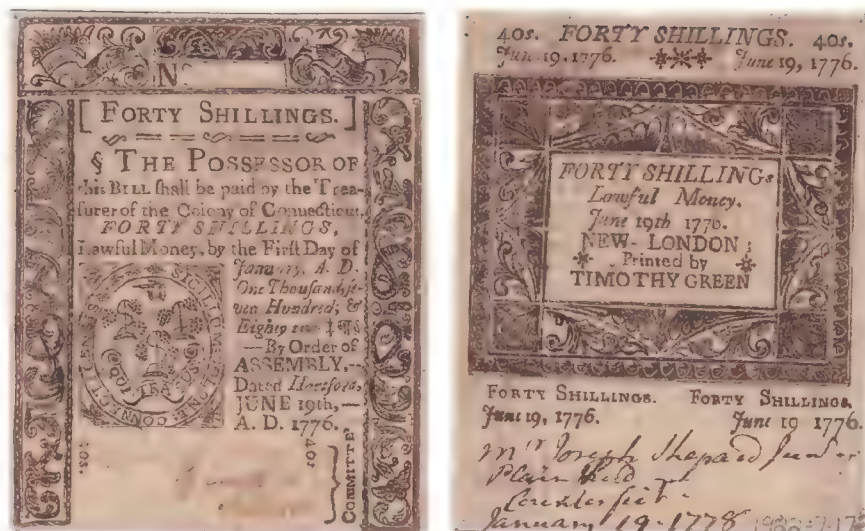 No
[ FORTY SHILLINGS. ]
§ THE POSSESSOR OF
this BILL shall be paid by the Trea-
surer of the Colony of Connecticut,
FORTY SHILLINGS,
Lawful Money, by the First Day of
January, A. D.
One Thousand se-
ven Hundred, &
Eighty
—By Order of
ASSEMBLY,—
Dated Hartford,
JUNE 19th,—
A. D. 1776.
40s.
40s
COMMITTE
40s. FORTY SHILLINGS. 40s.
June 19, 1776. June 19, 1776.
FORTY SHILLINGs
Lawful Money.
June 19th 1776.
NEW-LONDON;
Printed by
TIMOTHY GREEN
FORTY SHILLINGS. FORTY SHILLINGS.
June 19, 1776. June 19 1776.
Mr Joseph Shepard Junr
Plainfield
Counterfeit
January 19-1778